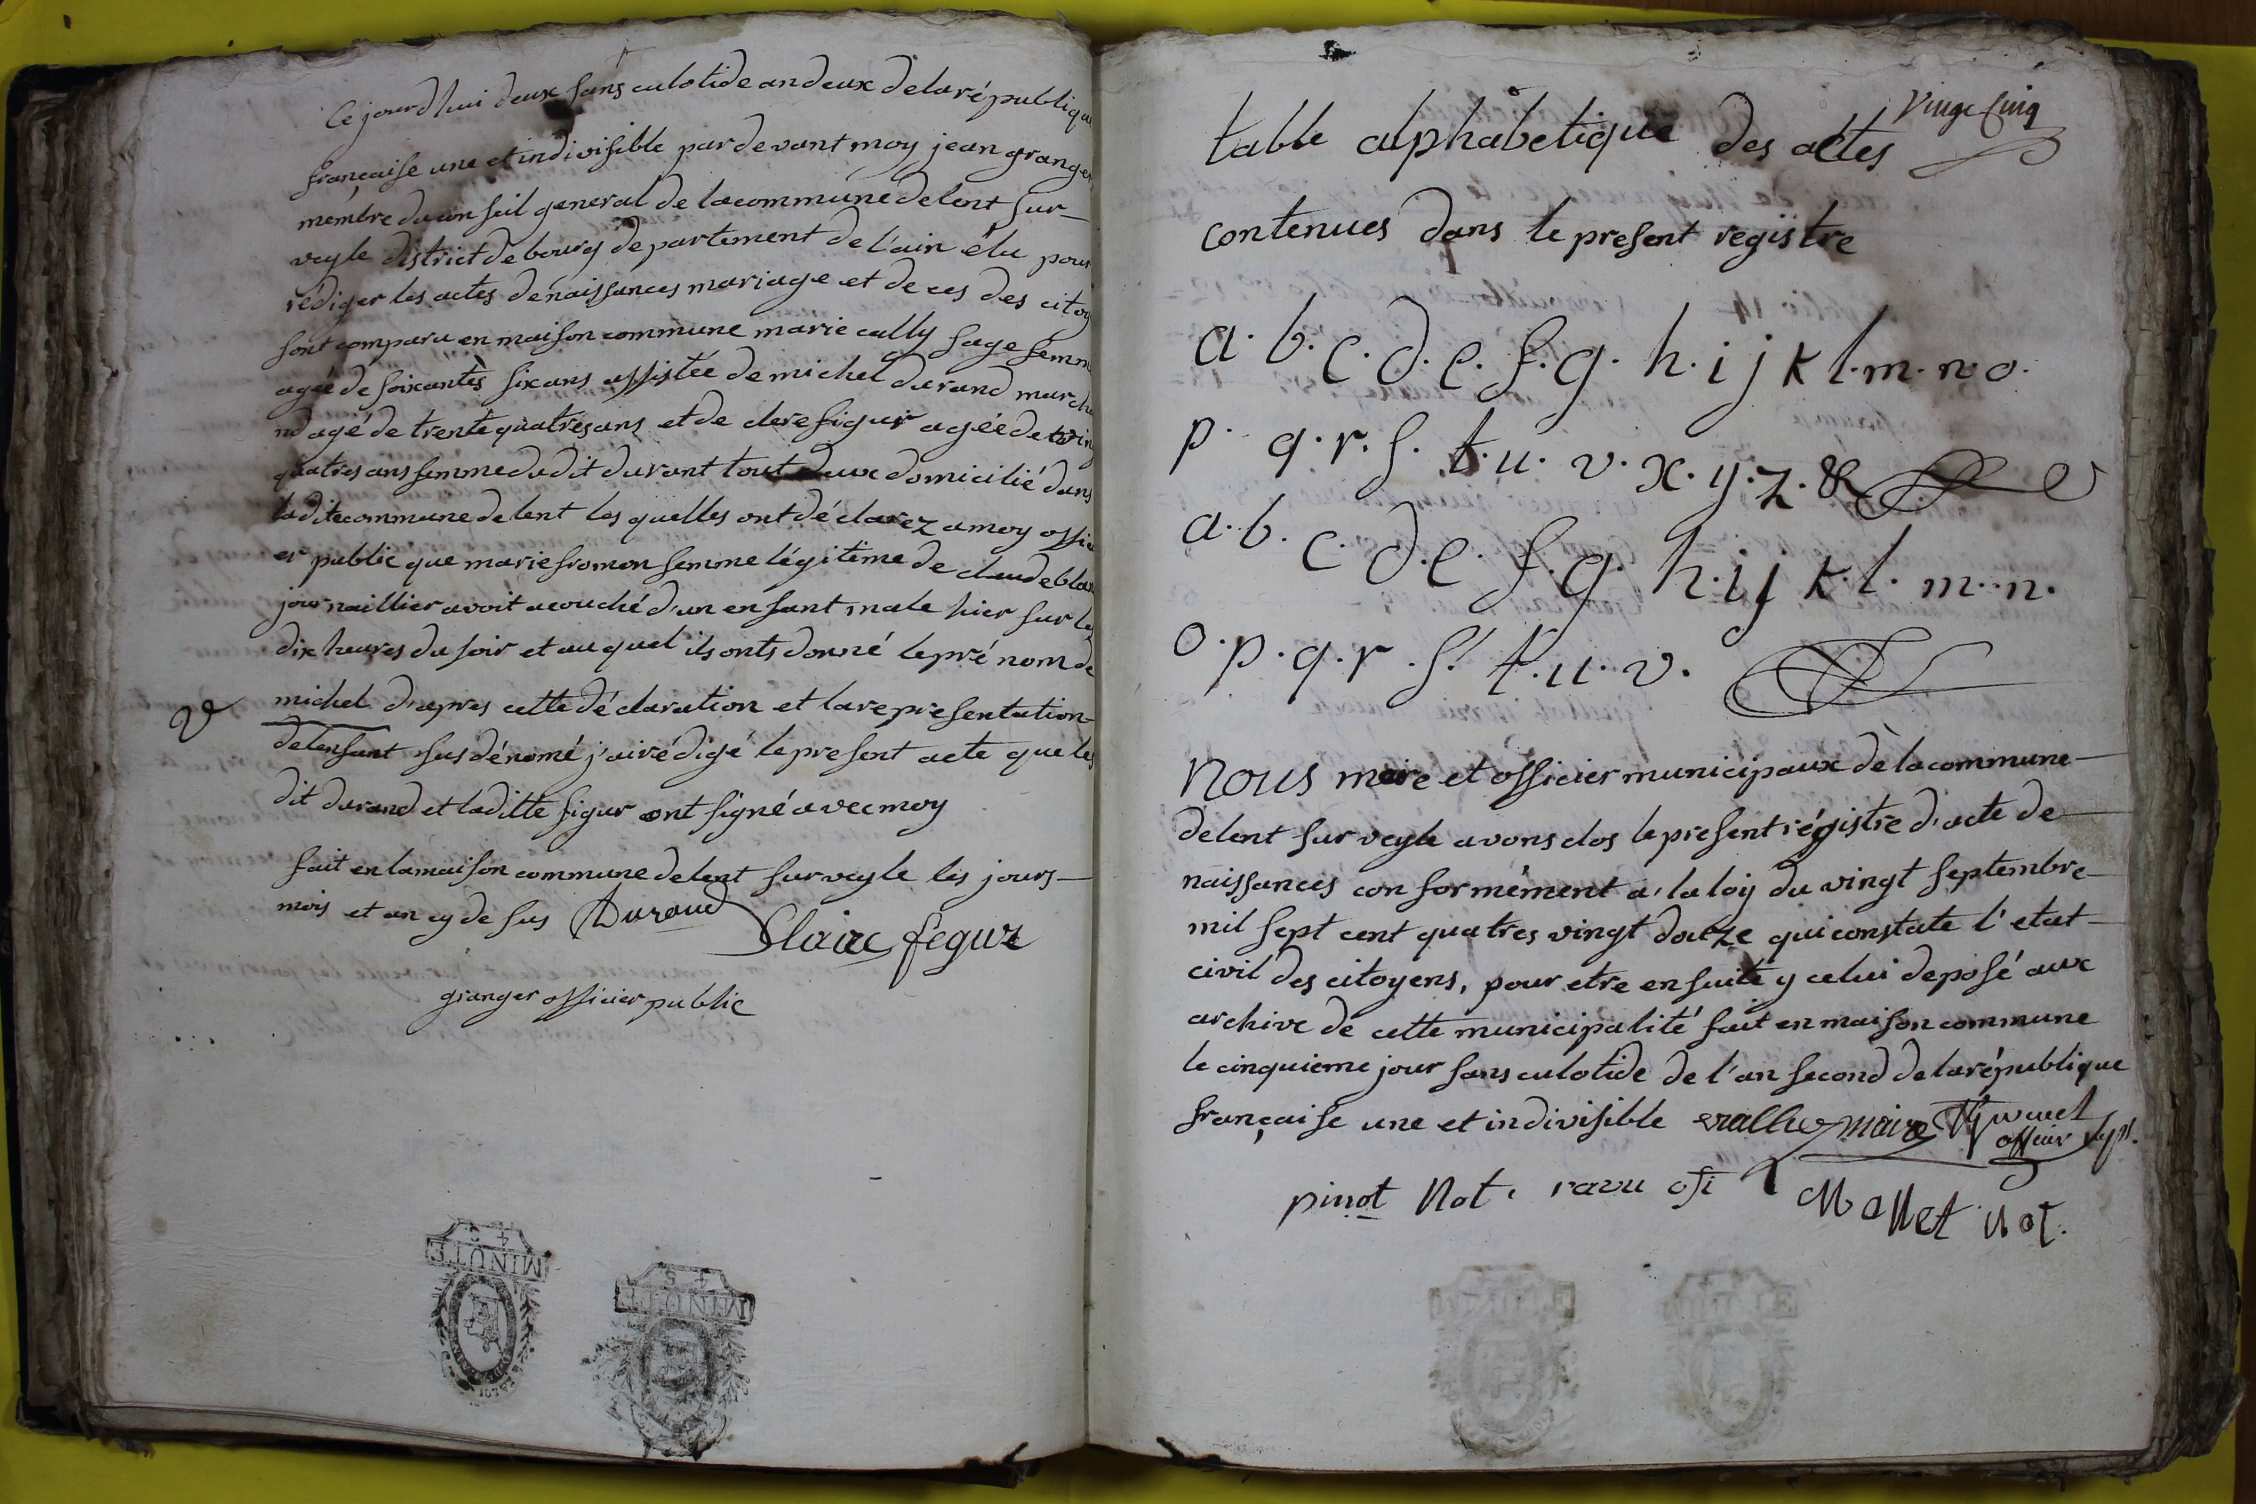 Ce jourd'hui deux sans culotide an deux de la république
française une et indivisible par devant moy jean granger
membre du conseil general de la commune de lent sur
veyle district de bourg departement de l'ain élu pour
rédiger les actes de naissances mariage et deces des citoy
sont comparu en maison commune marie cally sage femm
agée de soixantes six ans assistée de michel durand marcha
nd agé de trente quatres ans et de clere figur agée de vin
quatres ans femme dudit durant tout deux domicilié dans
ladite commune de lent les quelles ont déclarez a moy offici
er public que marie fromon femme légitime de claude blan
journaillier avoit acouché d'un enfant male hier sur les
dix heures du soir et au quel ils onts donné le pré nom de
michel d'apres cette déclaration et la representation
de lenfant sus dénomé j'ai rédigé le present acte que les
dit durand et laditte figur ont signé avec moy
fait en la maison commune de lent sur veyle les jours
mois et an cy de sus Durand
Claire fegur
granger officier public
MINUTE
MINUTE
Vingt Cinq
table alphabetique des actes
contenues dans le present registre
a. b. c. d. e. f. g. h. i j k l. m. n. o.
p. q. r. s. t. u. v. x. y. z. &
a. b. c. d. e. f. g. h. i j k. l. m. n.
o. p. q. r. s. t. u. v.
Nous maire et officier municipaux de la commune
de lent sur veyle avons clos le present régistre d'acte de
naissances conformément a la loy du vingt septembre
mil sept cent quatres vingt douze qui constate l'etat
civil des citoyens, pour etre en suite y celui deposé aux
archive de cette municipalité fait en maison commune
le cinquieme jour sans culotide de l'an second de la république
française une et indivisible maire
officier
pinot Not. ravu ofi Mallet Not.